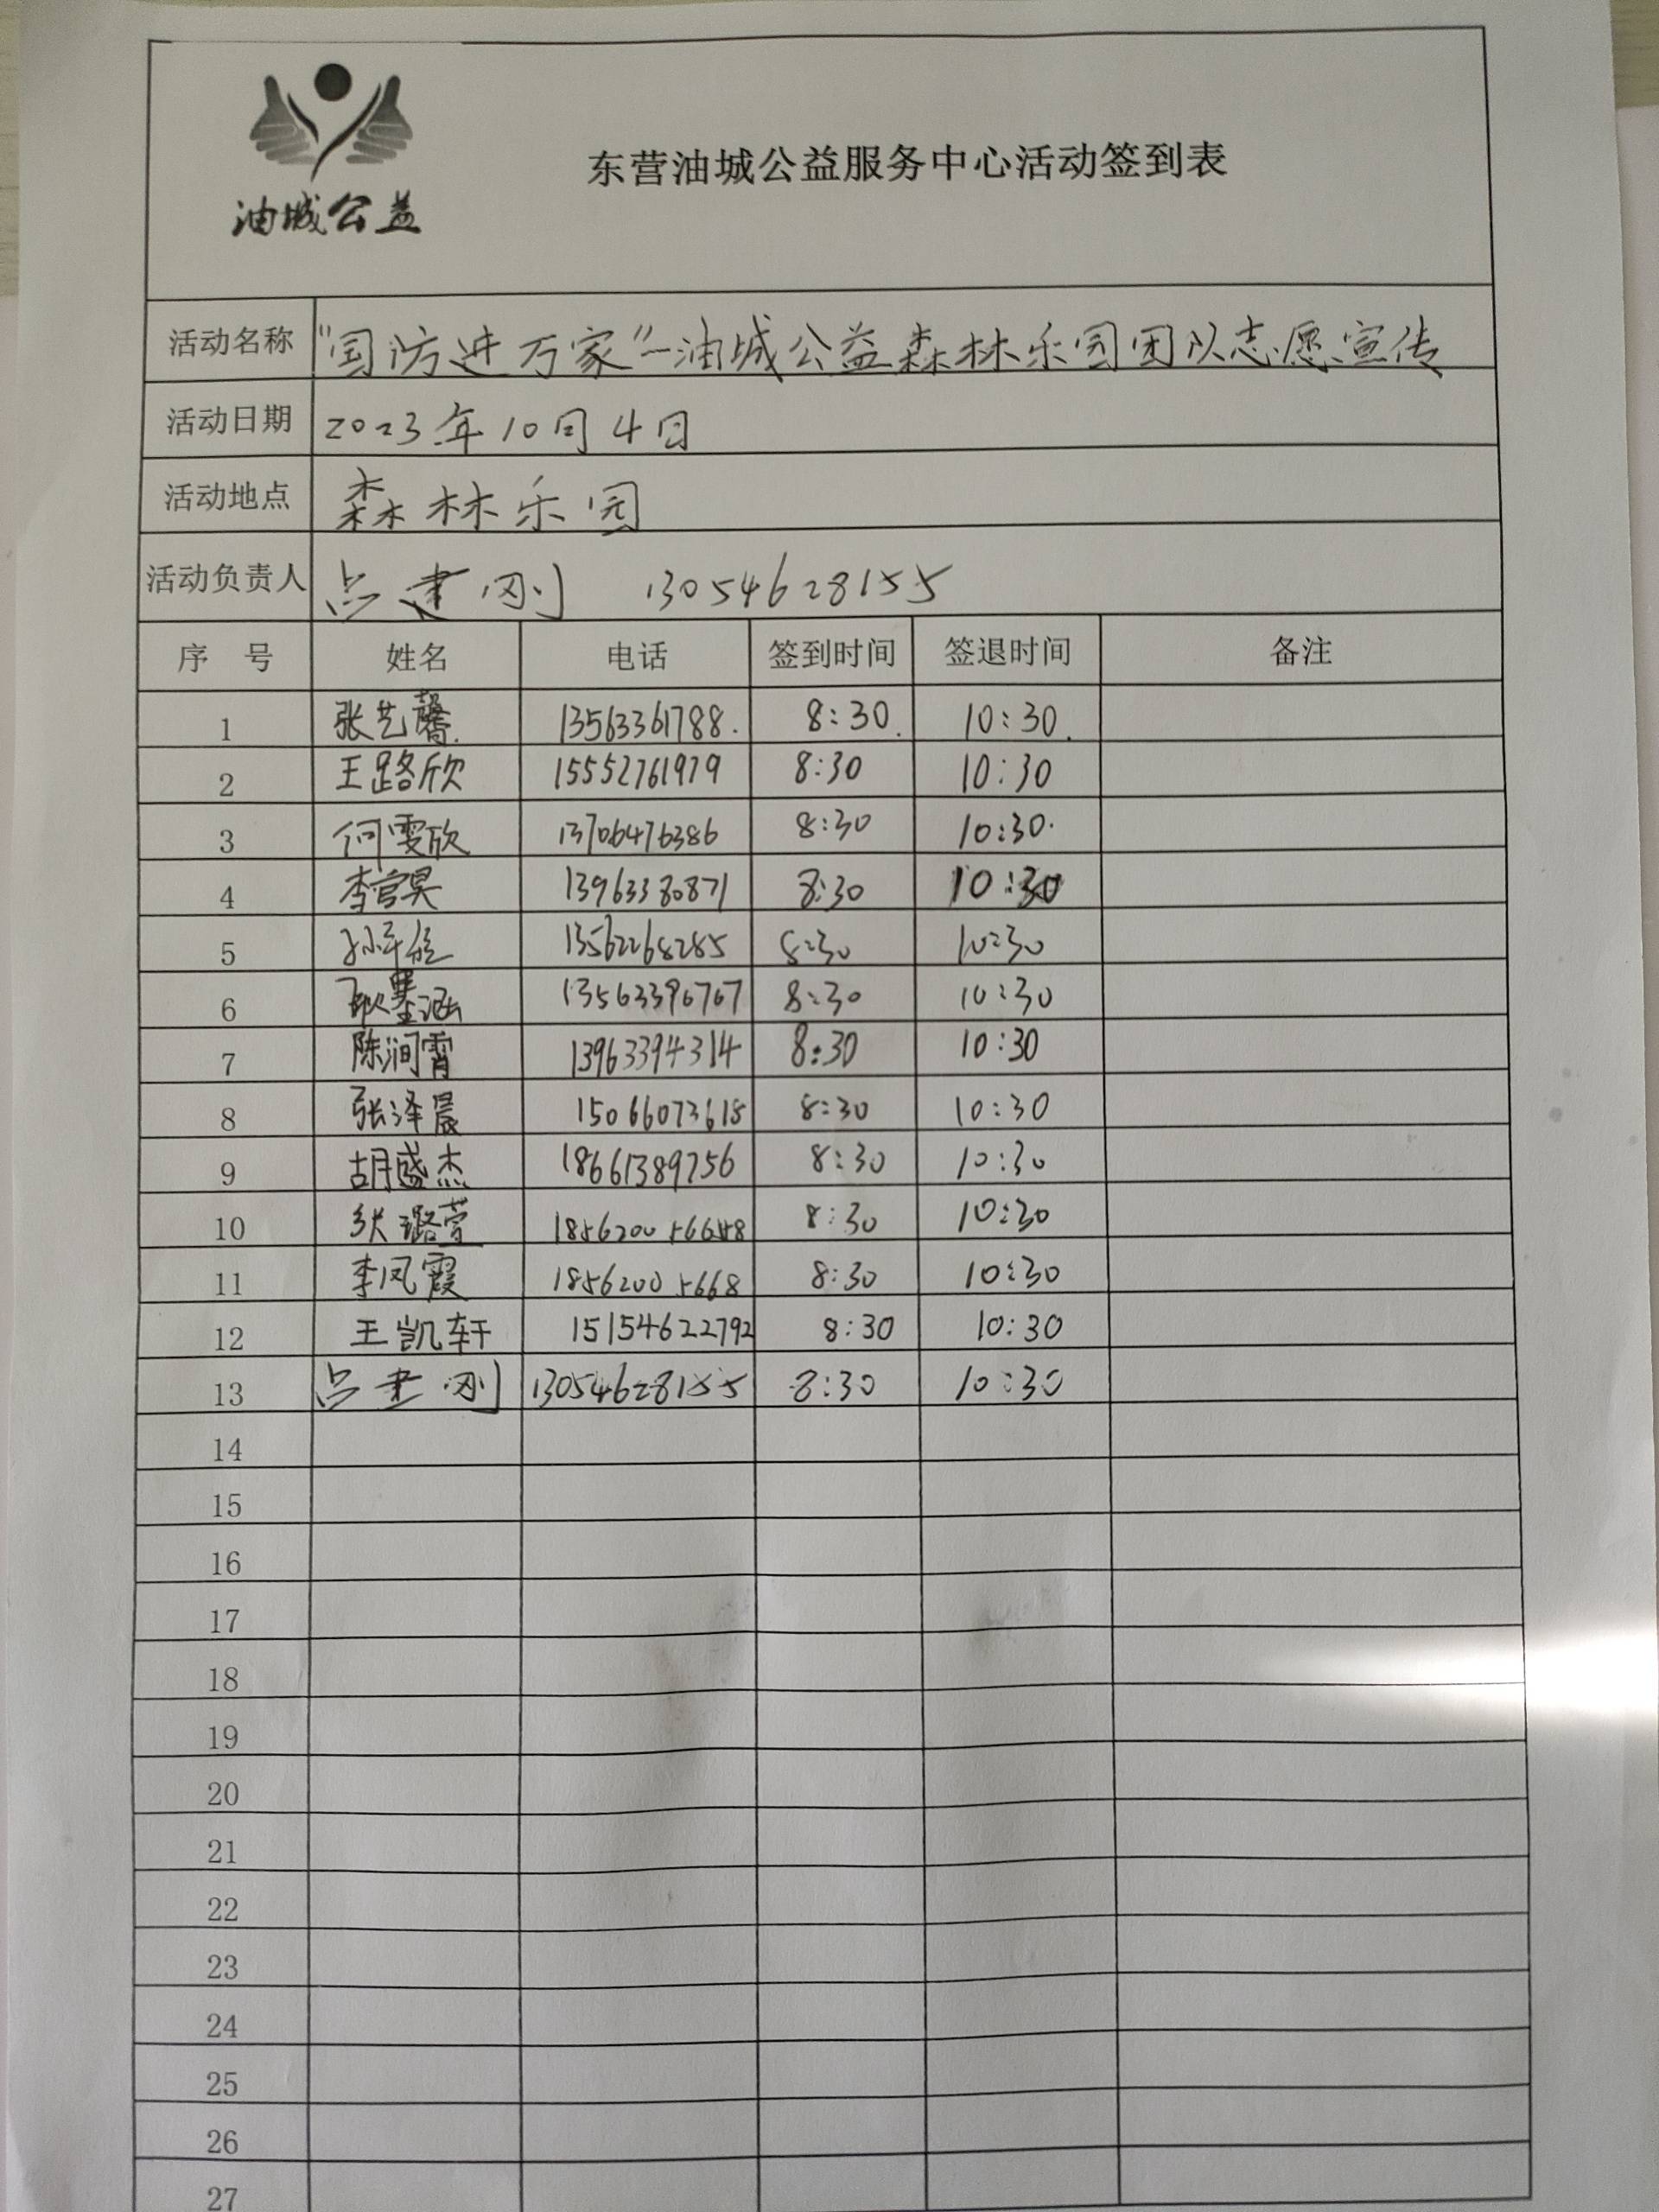 油城公益
东营油城公益服务中心活动签到表
活动名称 "国防进万家"—油城公益森林乐园团队志愿宣传
活动日期 2023年10月4日
活动地点 森林乐园
活动负责人 吕建刚 13054628155
序 号 姓名 电话 签到时间 签退时间 备注
1 张艺馨 13563361788. 8:30. 10:30.
2 王路欣 15552761979 8:30 10:30
3 何雯欣 13706476386 8:30 10:30.
4 李官昊 13963380871 8:30 10:30
5 13562268285 8:30 10:30
6 13563396767 8:30 10:30
7 陈涧霄 13963394314 8:30 10:30
8 张泽晨 15066073618 8:30 10:30
9 胡盛杰 18661389756 8:30 10:30
10 张璐萱 8:30 10:30
11 李凤霞 18562005668 8:30 10:30
12 王凯轩 15154622792 8:30 10:30
13 吕建刚 13054628155 8:30 10:30
14
15
16
17
18
19
20
21
22
23
24
25
26
27